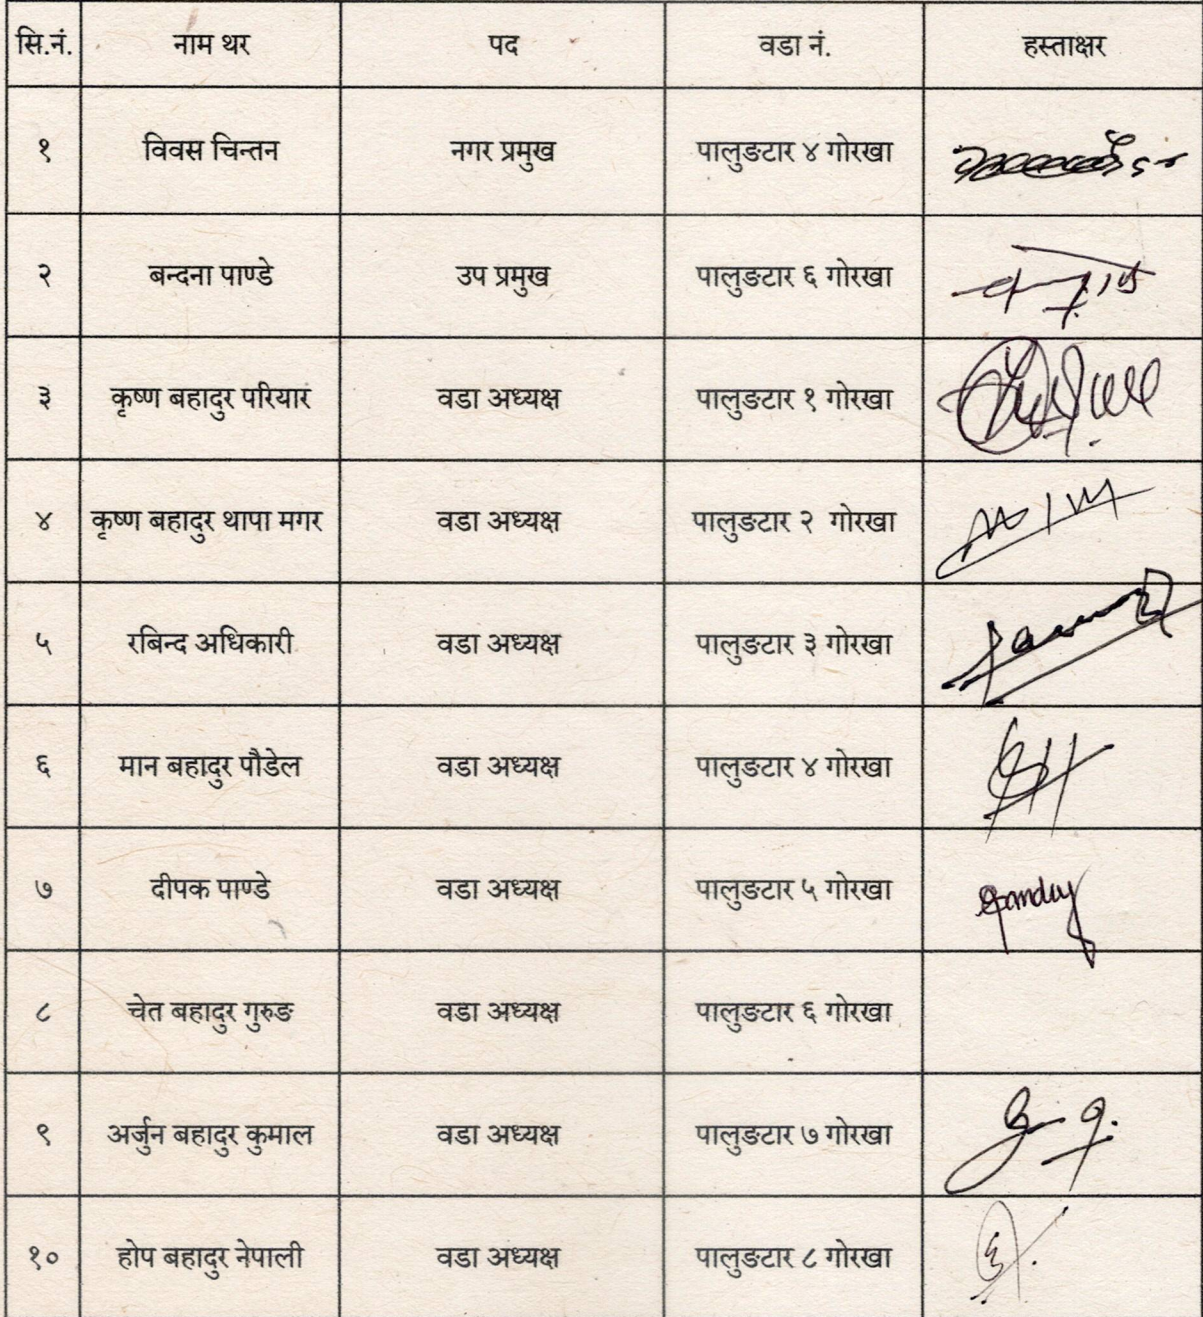 सि.नं. नाम थर पद वडा नं. हस्ताक्षर
१ विवस चिन्तन नगर प्रमुख पालुङटार ४ गोरखा
२ बन्दना पाण्डे उप प्रमुख पालुङटार ६ गोरखा
३ कृष्ण बहादुर परियार वडा अध्यक्ष पालुङटार १ गोरखा
४ कृष्ण बहादुर थापा मगर वडा अध्यक्ष पालुङटार २ गोरखा
५ रबिन्द अधिकारी वडा अध्यक्ष पालुङटार ३ गोरखा
६ मान बहादुर पौडेल वडा अध्यक्ष पालुङटार ४ गोरखा
७ दीपक पाण्डे वडा अध्यक्ष पालुङटार ५ गोरखा
८ चेत बहादुर गुरुङ वडा अध्यक्ष पालुङटार ६ गोरखा
९ अर्जुन बहादुर कुमाल वडा अध्यक्ष पालुङटार ७ गोरखा
१० होप बहादुर नेपाली वडा अध्यक्ष पालुङटार ८ गोरखा